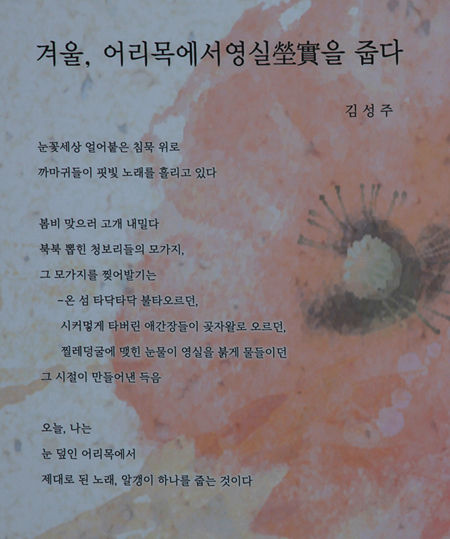 겨울, 어리목에서영실瑩實을 줍다
김성주
눈꽃세상 얼어붙은 침묵 위로
까마귀들이 핏빛 노래를 흘리고 있다
봄비 맞으러 고개 내밀다
북북 뽑힌 청보리들의 모가지,
그 모가지를 찢어발기는
-온 섬 타닥타닥 불타오르던,
시커멓게 타버린 애간장들이 곶자왈로 오르던,
찔레덩굴에 맺힌 눈물이 영실을 붉게 물들이던
그 시절이 만들어낸 득음
오늘, 나는
눈 덮인 어리목에서
제대로 된 노래, 알갱이 하나를 줍는 것이다